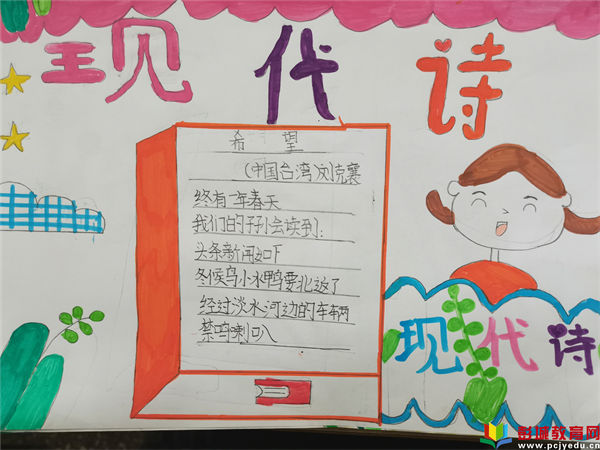 现代诗
希 望
(中国台湾刘克襄
终有一年春天
我们的子孙会读到:
头条新闻如下
冬候鸟小水鸭要北返了
经过淡水河边的车辆
禁鸣喇叭
现代诗
彭城教育网
www.pcjyedu.cn